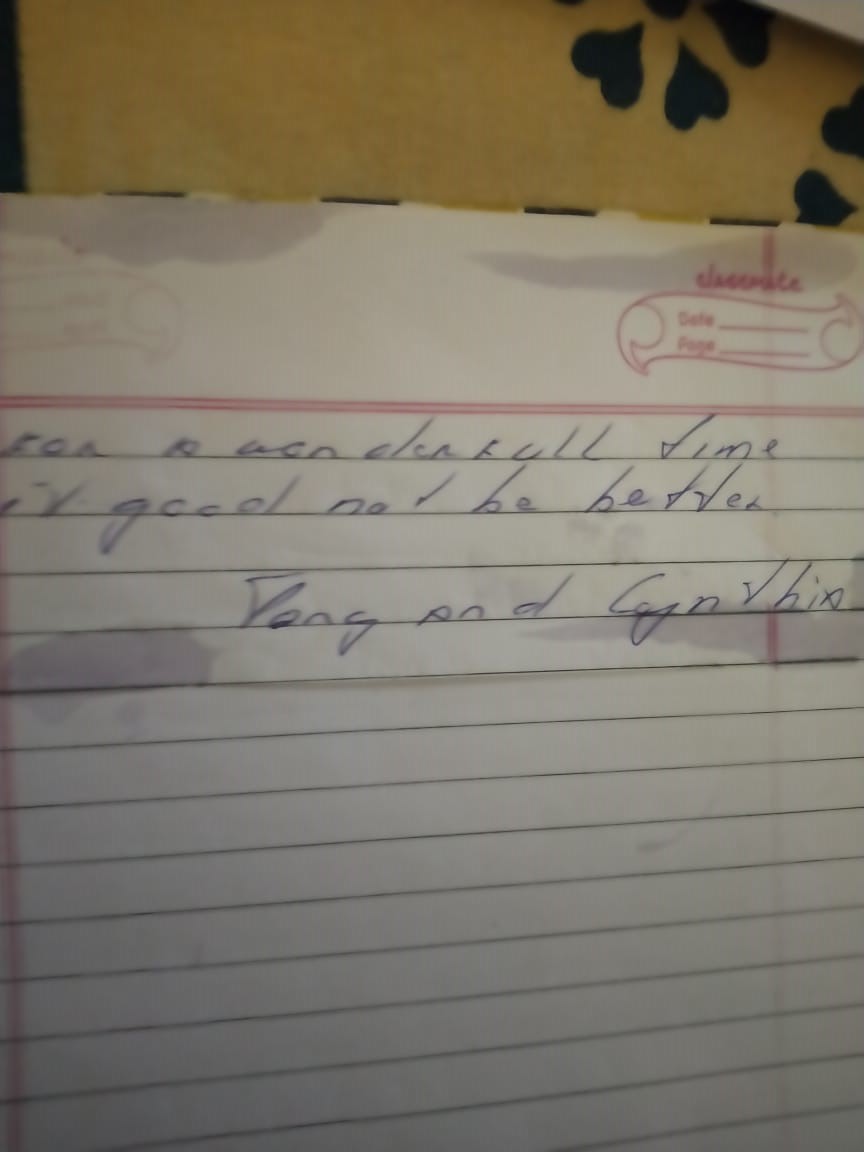 classmate
Date
Page
for a wonderfull time
it good not be better
Tony and Cynthia